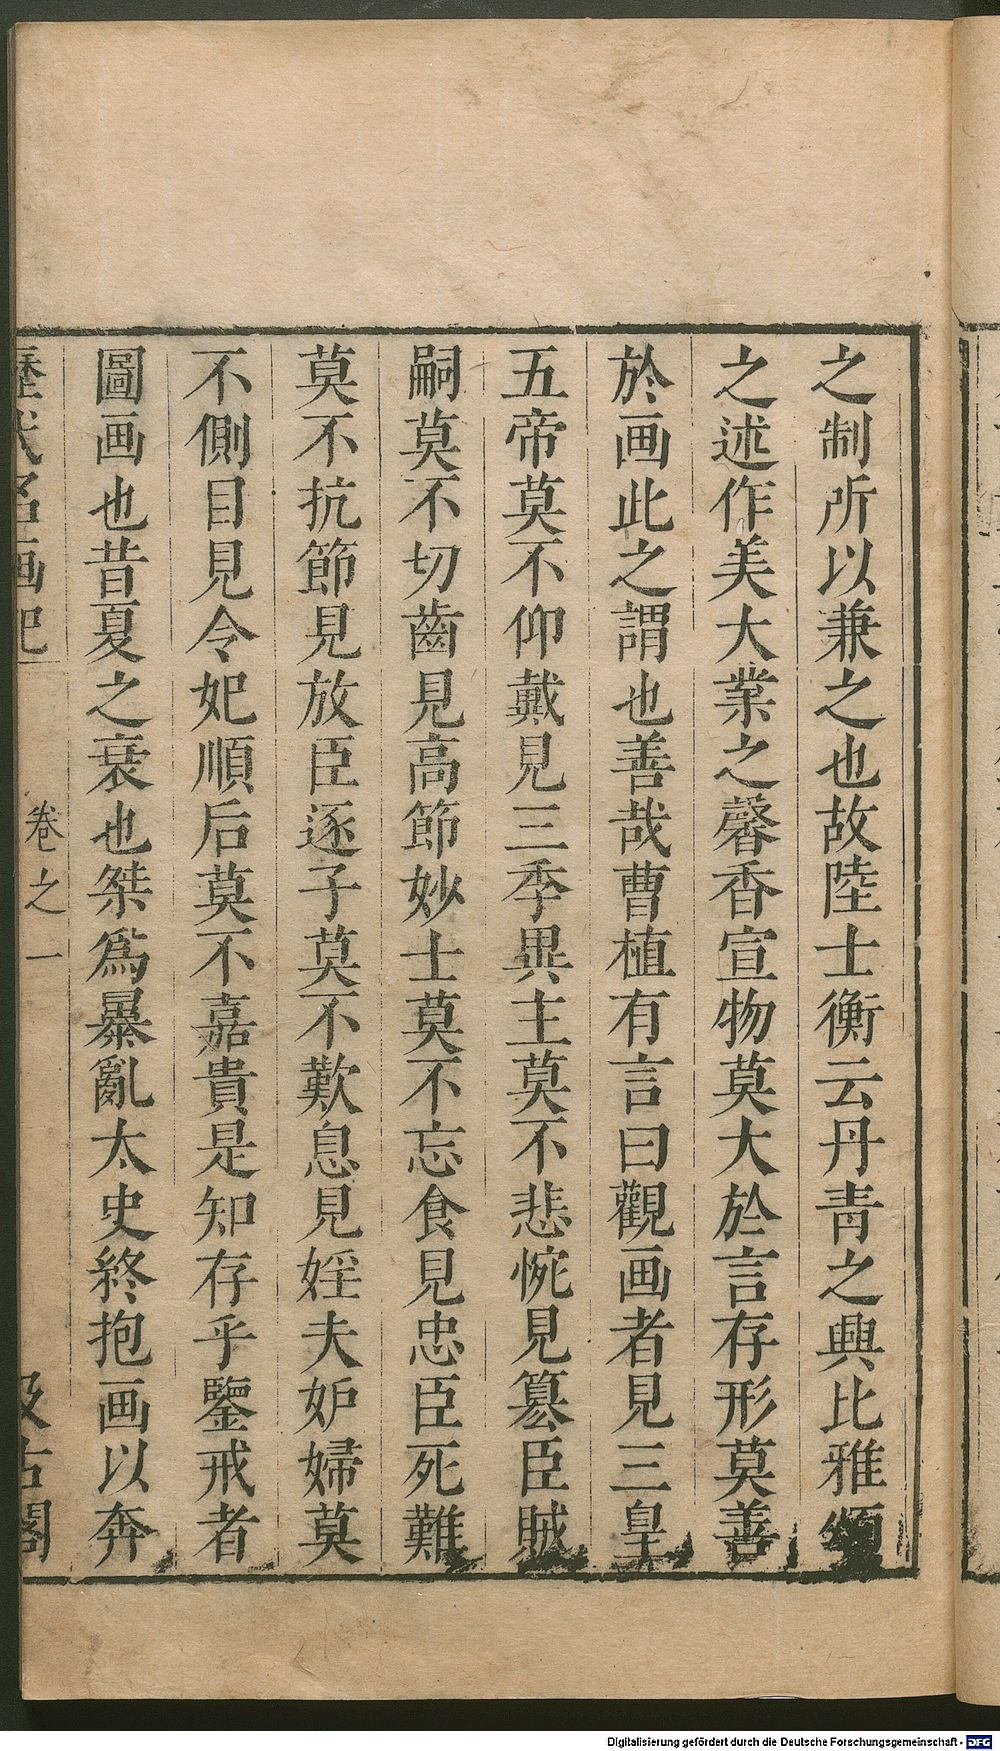 之制所以兼之也故陸士衡云丹青之興比雅頌
之述作美大業之馨香宣物莫大於言存形莫善
於画此之謂也善哉曹植有言曰觀画者見三皇
五帝莫不仰戴見三季異主莫不悲惋見篡臣賊
嗣莫不切齒見高節妙士莫不忘食見忠臣死難
莫不抗節見放臣逐子莫不歎息見婬夫妒婦莫
不側目見令妃順后莫不嘉貴是知存乎鑒戒者
圖画也昔夏之衰也桀爲暴亂太史終抱画以奔
歷代名画記
卷之一
汲古閣
Digitalisierung gefördert durch die Deutsche Forschungsgemeinschaft - DFG